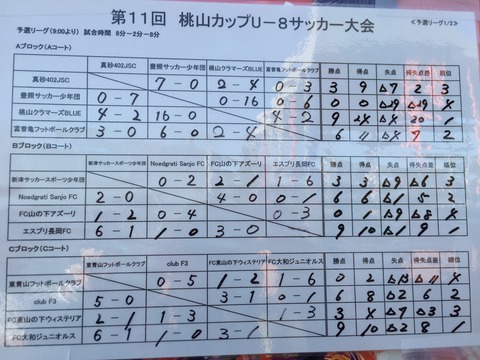 第11回 桃山カップU-8サッカー大会
≪予選リーグ1/2≫
予選リーグ(9:00より) 試合時間 8分-2分-8分
Aブロック(Aコート)
真砂402JSC 豊照サッカー少年団 桃山クラマーズBLUE 富曽亀フットボールクラブ 勝点 得点 失点 得失点差 順位
真砂402JSC 7-0 2-4 0-3 3 9 △7 2 3
豊照サッカー少年団 0-7 0-16 0-6 0 0
桃山クラマーズBLUE 4-2 16-0 4-2 9 1
富曽亀フットボールクラブ 3-0 6-0 2-4 6 11 7 2
Bブロック(Bコート)
新津サッカースポーツ少年団 Noedgrati Sanjo FC FC山の下アズーリ エスプリ長岡FC 勝点 得点 失点 得失点差 順位
新津サッカースポーツ少年団 0-2 2-1 1-6 3 3 △9 △6 3
Noedgrati Sanjo FC 2-0 4-0 0-1 6 6 △1 5 2
FC山の下アズーリ 1-2 0-4 0-3 0 1 △9 △8 4
エスプリ長岡FC 6-1 1-0 3-0 9 10 △1 9 1
Cブロック(Cコート)
東青山フットボールクラブ club F3 FC東山の下ヴィステリア FC大和ジュニオルス 勝点 得点 失点 得失点差 順位
東青山フットボールクラブ 0-5 1-2 1-6 0 2 △13 △11 4
club F3 5-0 3-1 0-1 6 8 △2 6 2
FC東山の下ウィステリア 2-1 1-3 1-3 3 △7 △3 3
FC大和ジュニオルス 6-1 1-0 3-1 9 10 △2 8 1